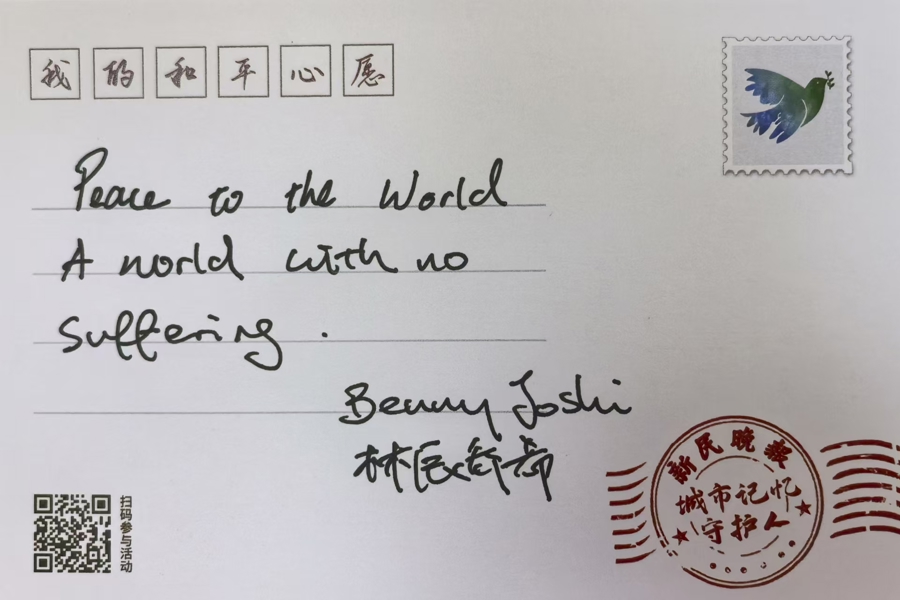 我的和平心愿
Peace to the World
A world with no
suffering.
Benny Joshi
扫码参与活动
新民晚报
城市记忆
守护人